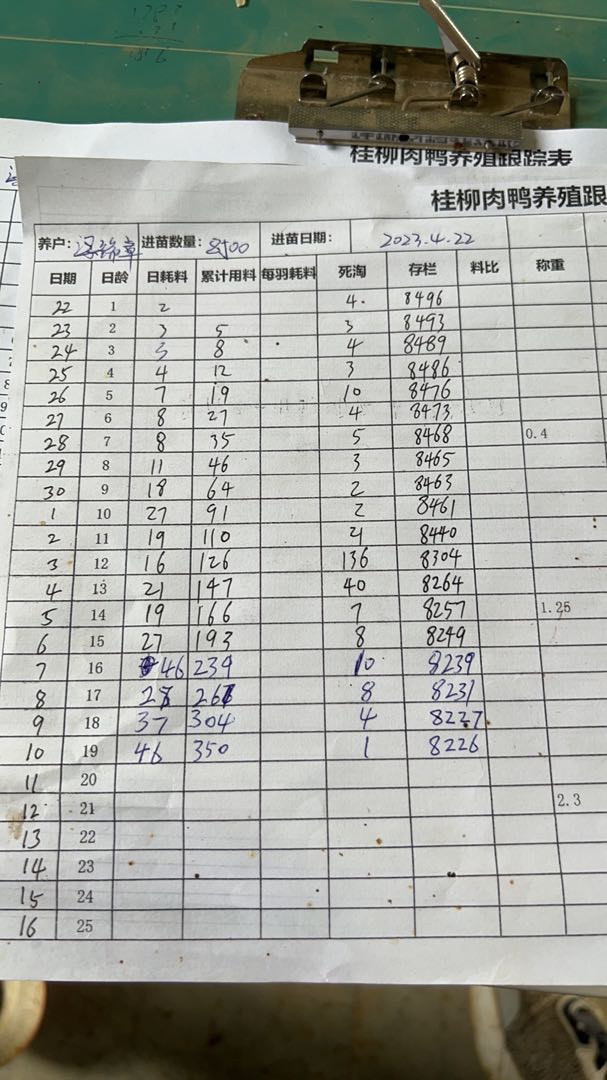 桂柳肉鸭养殖跟踪表
桂柳肉鸭养殖跟
养户: 进苗数量: 8500 进苗日期: 2023.4.22
日期 日龄 日耗料 累计用料 每羽耗料 死淘 存栏 料比 称重
22 1 2 4. 8496
23 2 3 5 3 8493
24 3 3 8 4 8489
25 4 4 12 3 8486
26 5 7 19 10 8476
27 6 8 27 4 8473
28 7 8 35 5 8468 0.4
29 8 11 46 3 8465
30 9 18 64 2 8463
1 10 27 91 2 8461
2 11 19 110 21 8440
3 12 16 126 136 8304
4 13 21 147 40 8264
5 14 19 166 7 8257 1.25
6 15 27 193 8 8249
7 16 46 239 10 8239
8 17 28 267 8 8231
9 18 37 304 4 8227
10 19 46 350 1 8226
11 20
12 21 2.3
13 22
14 23
15 24
16 25